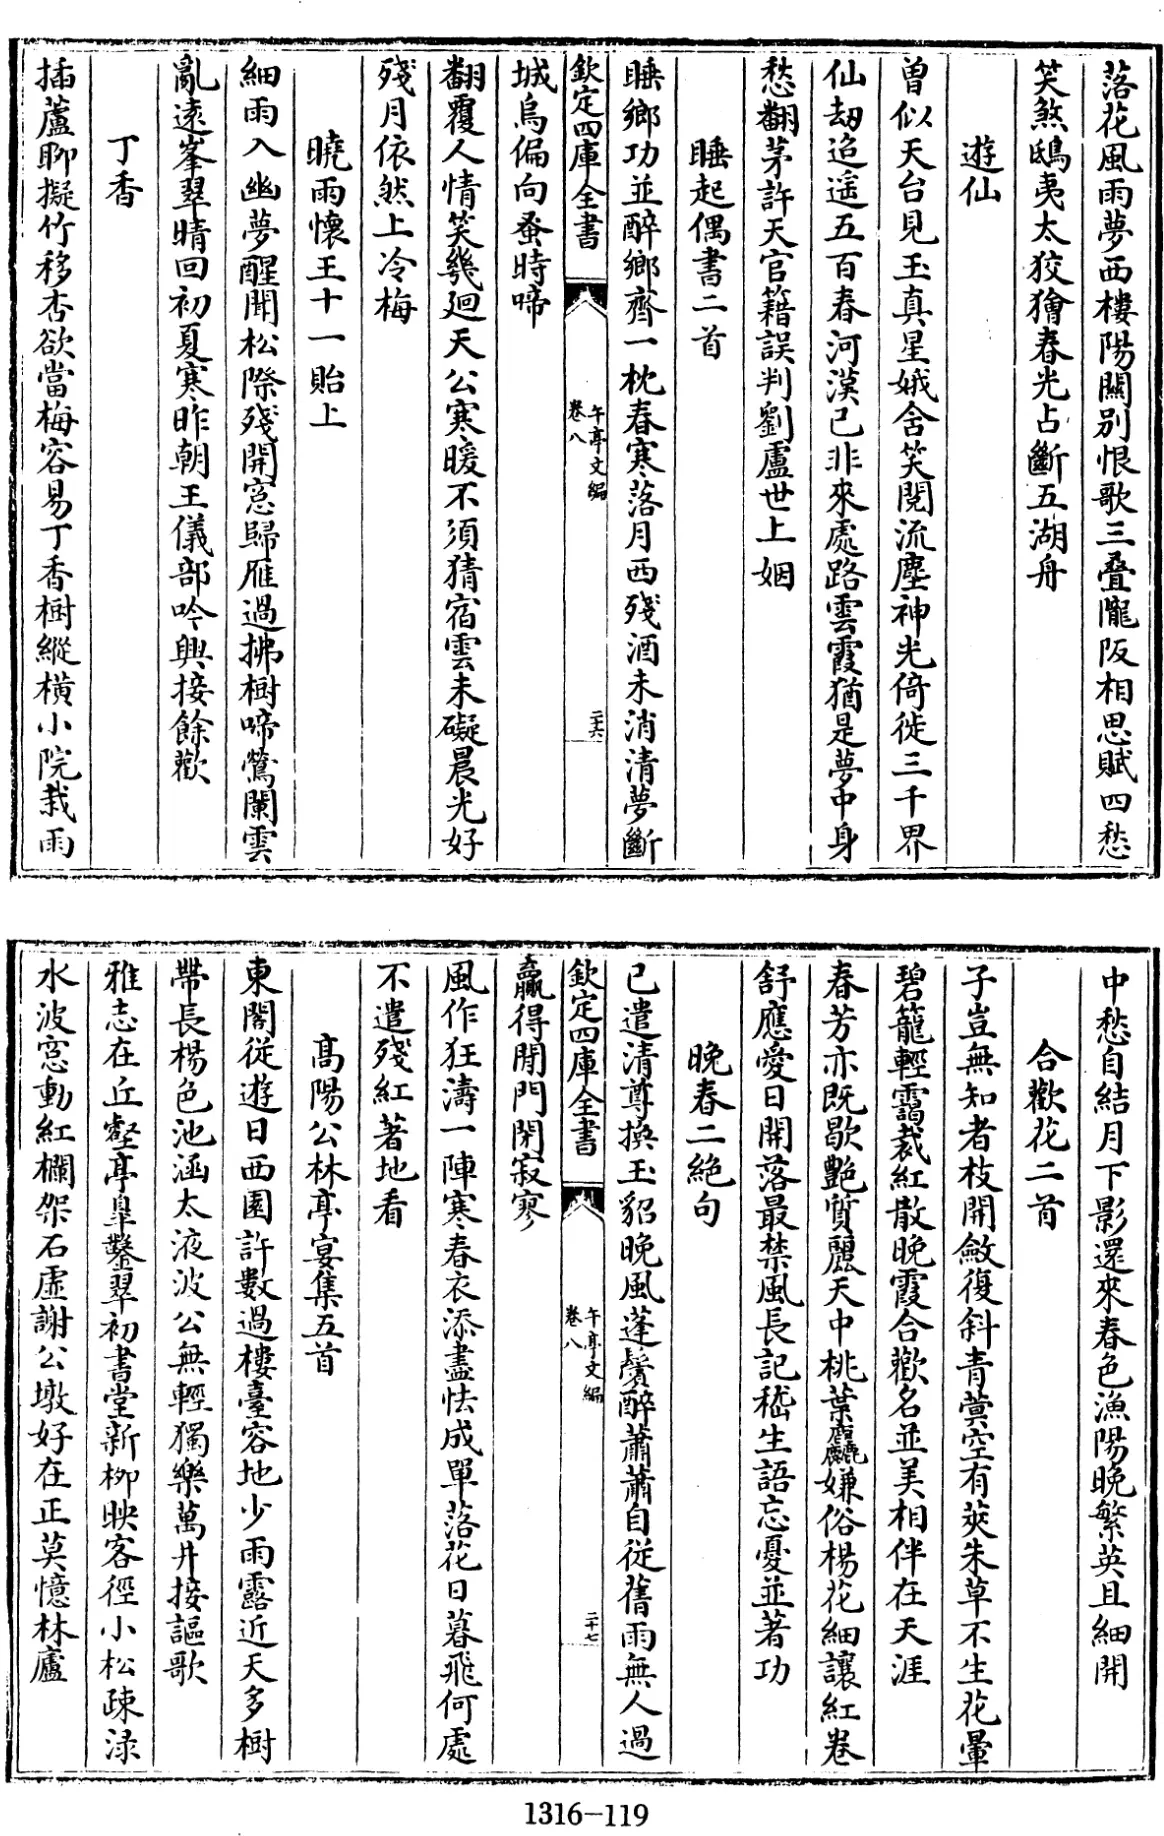 落花風雨夢西樓陽關別恨歌三疊隴阪相思賦四愁
笑煞鴟夷太狡獪春光占斷五湖舟
遊仙
曾似天台見玉真星娥含笑閱流塵神光倚徙三千界
仙劫迢遥五百春河漢已非來處路雲霞猶是夢中身
愁翻茅許天官籍誤判劉盧世上姻
睡起偶書二首
睡鄉功並醉鄉齊一枕春寒落月西殘酒未消清夢斷
欽定四庫全書
午亭文編
卷八
二十六
城烏偏向蚤時啼
翻覆人情笑幾迴天公寒暖不須猜宿雲未礙晨光好
殘月依然上冷梅
曉雨懷王十一貽上
細雨入幽夢醒聞松際殘開窓歸雁過拂樹啼鶯闌雲
亂遠峯翠晴回初夏寒昨朝王儀部吟興接餘歡
丁香
插蘆聊擬竹移杏欲當梅容易丁香樹縱橫小院栽雨
中愁自結月下影還來春色漁陽晩繁英且細開
合歡花二首
子豈無知者枝開斂復斜青蓂空有莢朱草不生花暈
碧籠輕靄裁紅散晩霞合歡名並美相伴在天涯
春芳亦既歇艶質麗天中桃葉麤嫌俗楊花細讓紅卷
舒應愛日開落最禁風長記嵇生語忘憂並著功
晩春二絶句
已遣清尊換玉貂晩風蓬鬢醉蕭蕭自從舊雨無人過
欽定四庫全書
午亭文編
卷八
二十七
贏得閒門閉寂寥
風作狂濤一陣寒春衣添盡怯成單落花日暮飛何處
不遣殘紅著地看
高陽公林亭宴集五首
東閣從遊日西園許數過樓臺容地少雨露近天多樹
帶長楊色池涵太液波公無輕獨樂萬井接謳歌
雅志在丘壑亭臯鑿翠初書堂新柳映客徑小松疎渌
水波窓動紅欄架石虛謝公墩好在正莫憶林廬
1316-119